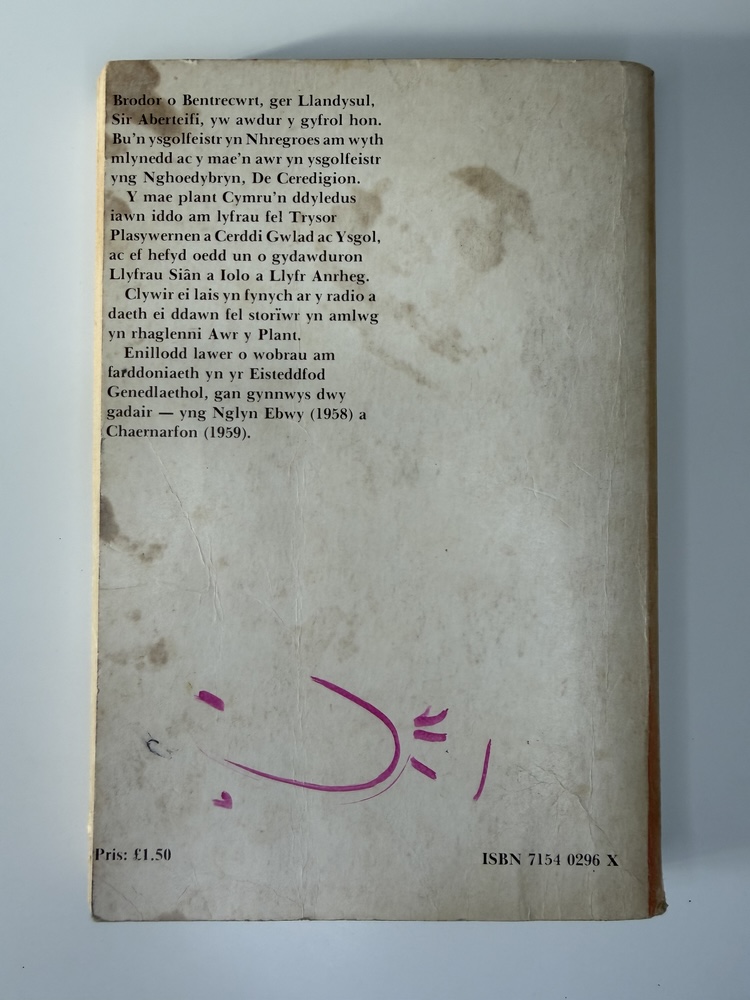 Brodor o Bentrecwrt, ger Llandysul,
Sir Aberteifi, yw awdur y gyfrol hon.
Bu'n ysgolfeistr yn Nhregroes am wyth
mlynedd ac y mae'n awr yn ysgolfeistr
yng Nghoedybryn, De Ceredigion.
Y mae plant Cymru'n ddyledus
iawn iddo am lyfrau fel Trysor
Plasywernen a Cerddi Gwlad ac Ysgol,
ac ef hefyd oedd un o gydawduron
Llyfrau Siân a Iolo a Llyfr Anrheg.
Clywir ei lais yn fynych ar y radio a
daeth ei ddawn fel storïwr yn amlwg
yn rhaglenni Awr y Plant.
Enillodd lawer o wobrau am
farddoniaeth yn yr Eisteddfod
Genedlaethol, gan gynnwys dwy
gadair — yng Nglyn Ebwy (1958) a
Chaernarfon (1959).
Pris: £1.50
ISBN 7154 0296 X